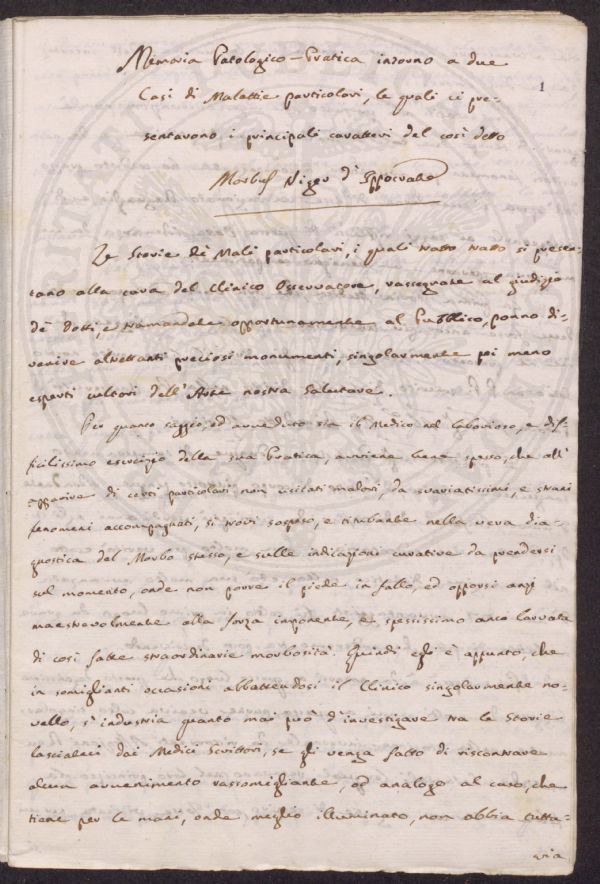 Memoria Patologico-Pratica intorno a due
1
Casi di Malattie particolari, le quali ci pre-
sentavono i principali caratteri del così detto
Morbus Niger d'Ippocrate
Le Storie de' Mali particolari, i quali tratto tratto si presen-
tano alla cura del Clinico Osservatore, rassegnate al giudizio
de' Dotti, e tramandate opportunamente al Pubblico, ponno di-
venire altrettanti preciosi monumenti, singolarmente pei meno
esperti cultori dell'Arte nostra Salutare.
Per quanto saggio, ed avveduto sia il Medico nel laborioso, e dif-
ficilissimo esercizio della sua Pratica, avviene bene spesso, che all'
apparire di certi particolari non usitati malori, da svariatissimi, e strani
fenomeni accompagnati, si trovi sospeso, e titubante nella vera dia-
gnostica del Morbo stesso, e sulle indicazioni curative da prendersi
sul momento, onde non porre il piede in fallo, ed opporsi anzi
maestrevolmente alla forza imponente, e spessissimo anco larvata
di così fatte straordinarie morbosità. Quindi egli è appunto, che
in somiglianti occasioni abbattendosi il Clinico singolarmente no-
vello, s'industria quanto mai può d'investigare tra le Storie
lasciateci dai Medici Scrittori, se gli venga fatto di riscontrare
alcun avvenimento rassomigliante, od analogo al caso, che
tiene per le mani, onde meglio illuminato, non abbia tutta-
via